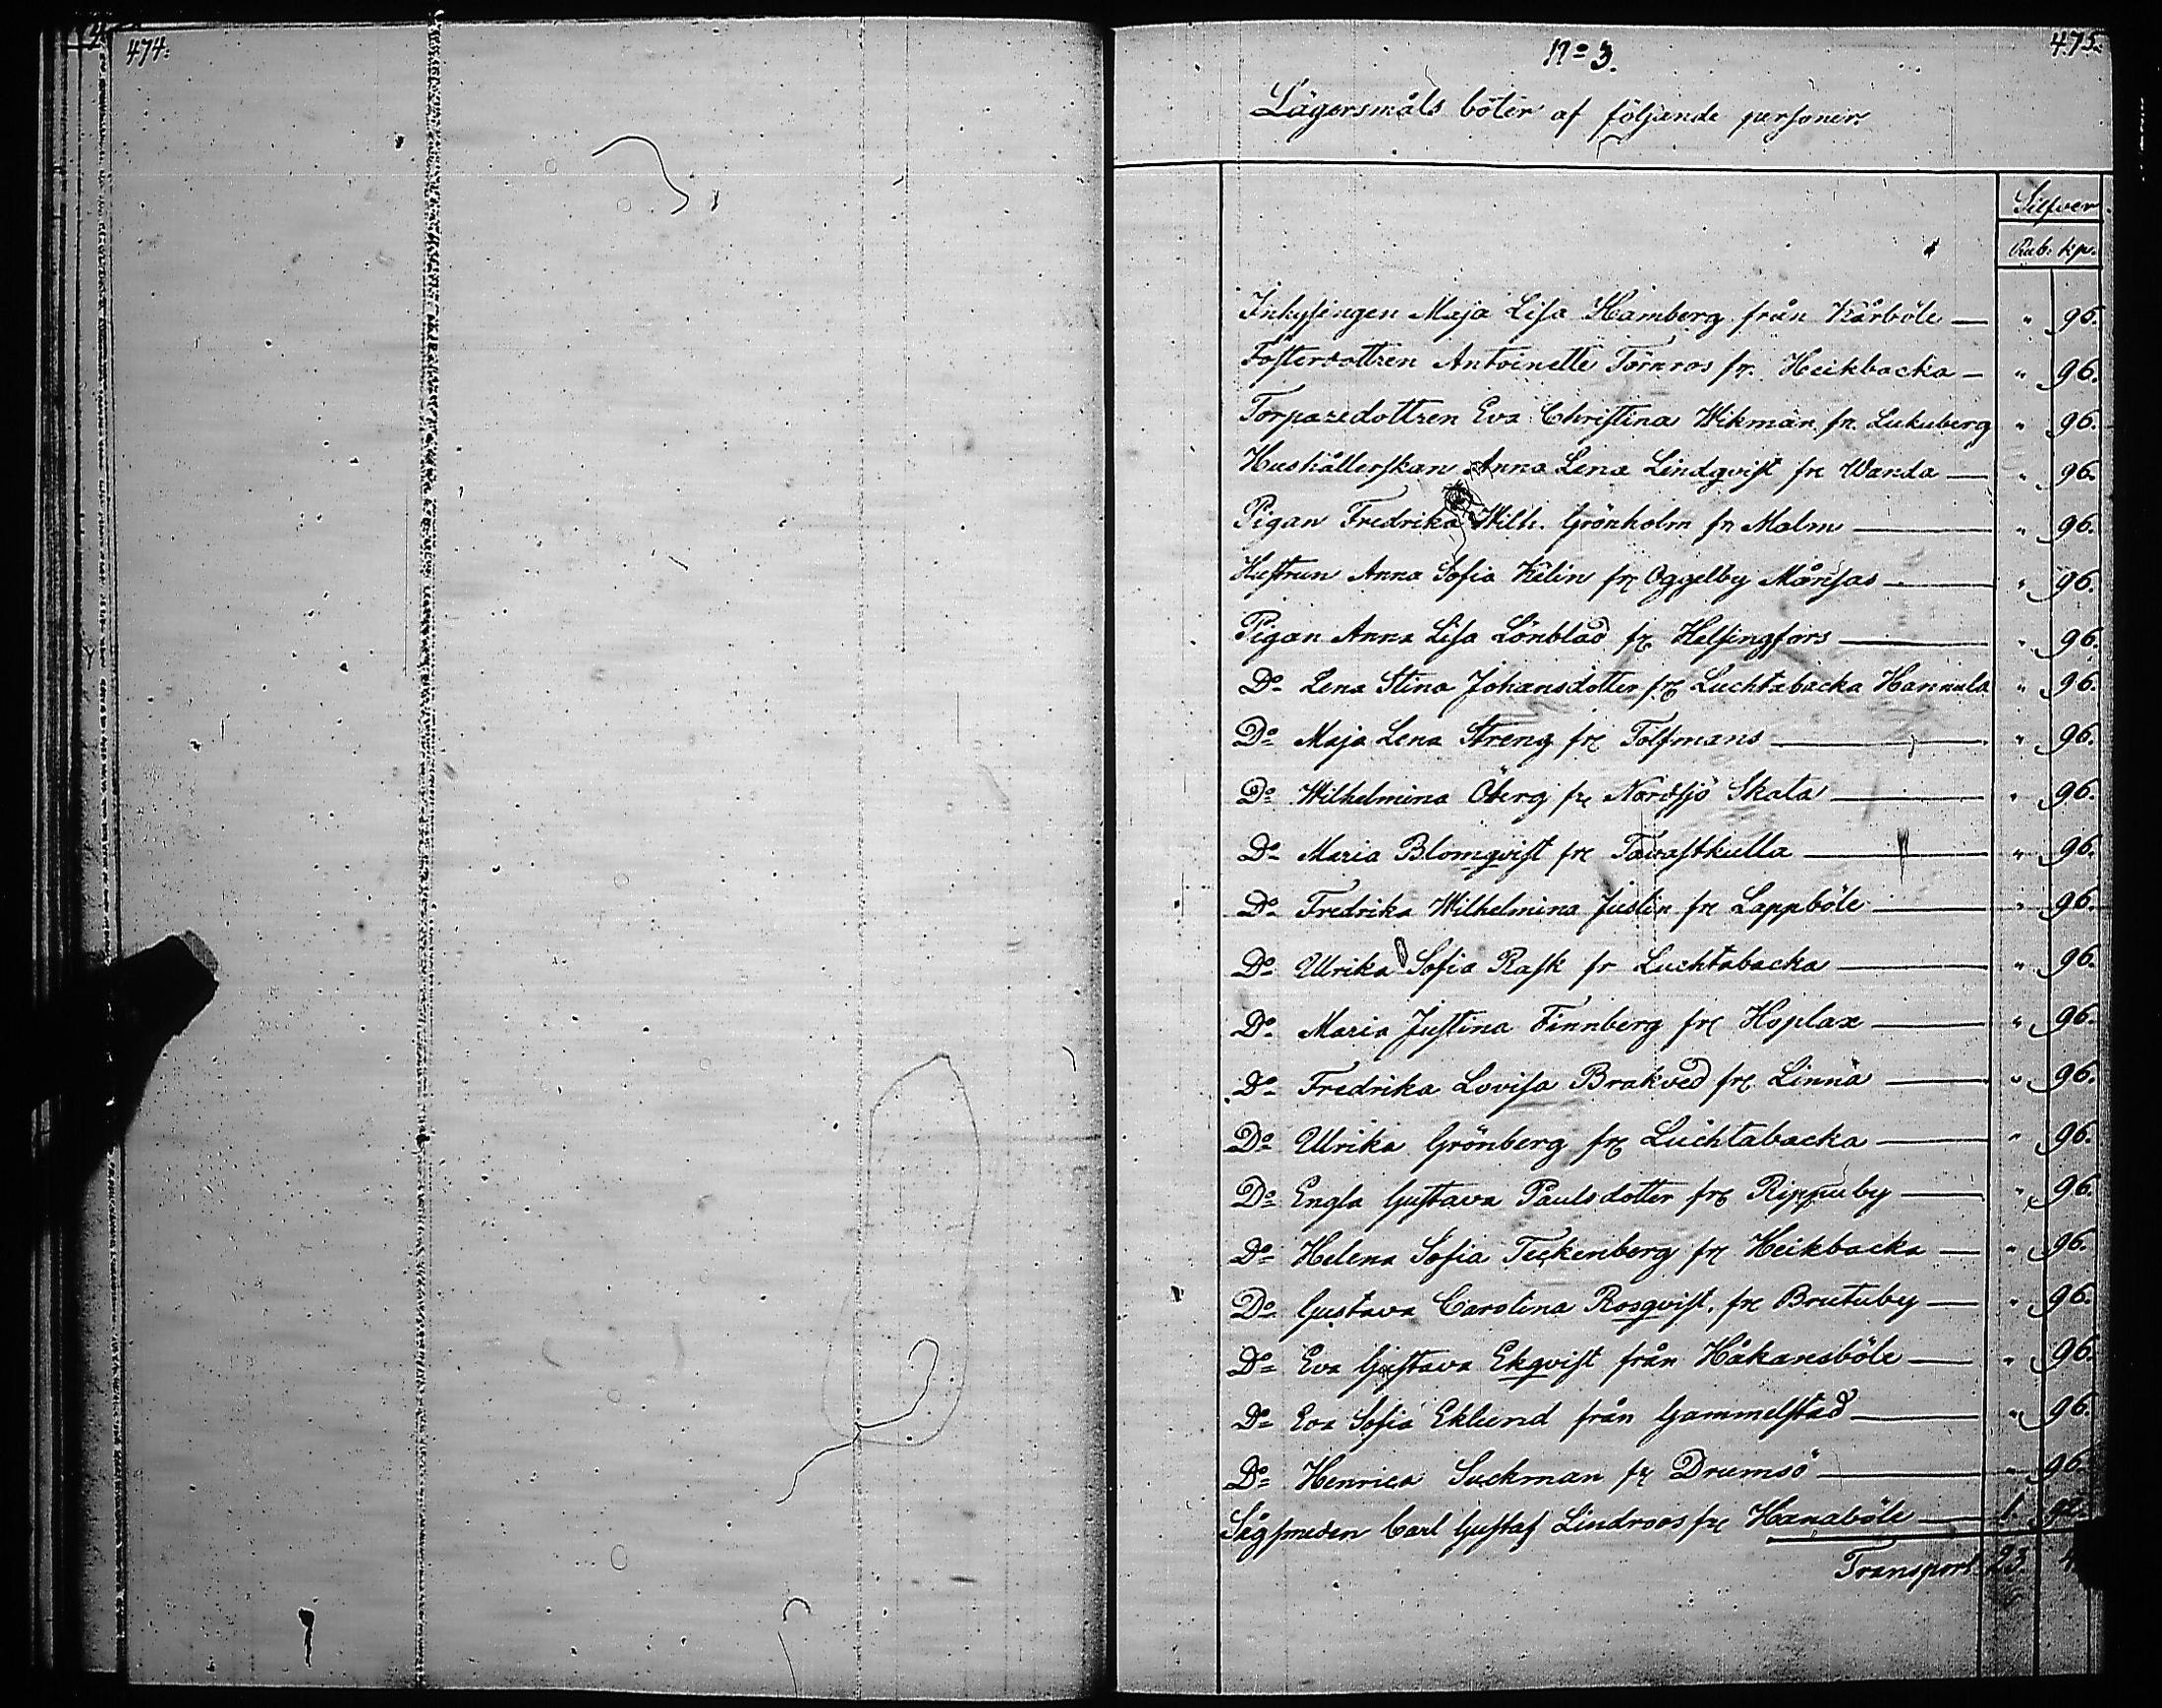 474.
475.
No 3.
Lägersmåls böter af följande personer.
Silfver
Rub. kp.
Inhysingen Maja Lisa Hamberg från Kårböle — " 96.
Fosterdottren Antoinette Törnros fr. Heikbacka — " 96.
Torparedottren Eva Christina Wikman fr. Lukuberg " 96.
Hushållerskan Anna Lena Lindqvist fr Wanda — " 96.
Pigan Fredrika Wilh. Grönholm fr Malm — " 96.
Hustrun Anna Sofia Kelin fr Oggelby Månsas — " 96.
Pigan Anna Lisa Lönblad fr Helsingfors — " 96.
Do Lena Stina Johansdotter fr Luchtabacka Hannula " 96.
Do Maja Lena Streng fr Tolfmans — " 96.
Do Wilhelmina Öberg fr Nordsjö Skata — " 96.
Do Maria Blomqvist fr Tavastkulla — " 96.
Do Fredrika Wilhelmina Juslin fr Lappböle — " 96.
Do Ulrika Sofia Rask fr Luchtabacka — " 96.
Do Maria Justina Finnberg fr Hoplax — " 96.
Do Fredrika Lovisa Brakved fr Linnä — " 96.
Do Ulrika Grönberg fr Luchtabacka — " 96.
Do Engla Gustava Paulsdotter fr Rippuby — " 96.
Do Helena Sofia Teckenberg fr Heikbacka — " 96.
Do Gustava Carolina Rosqvist. fr Brutuby — " 96.
Do Eva Gustava Ekqvist från Håkansböle — " 96.
Do Eva Sofia Eklund från Gammelstad — " 96.
Do Henrica Suckman fr Drumsö — " 96.
Sågsmeden Carl Gustaf Lindroos fr Hanaböle — 1.
Transport 23.